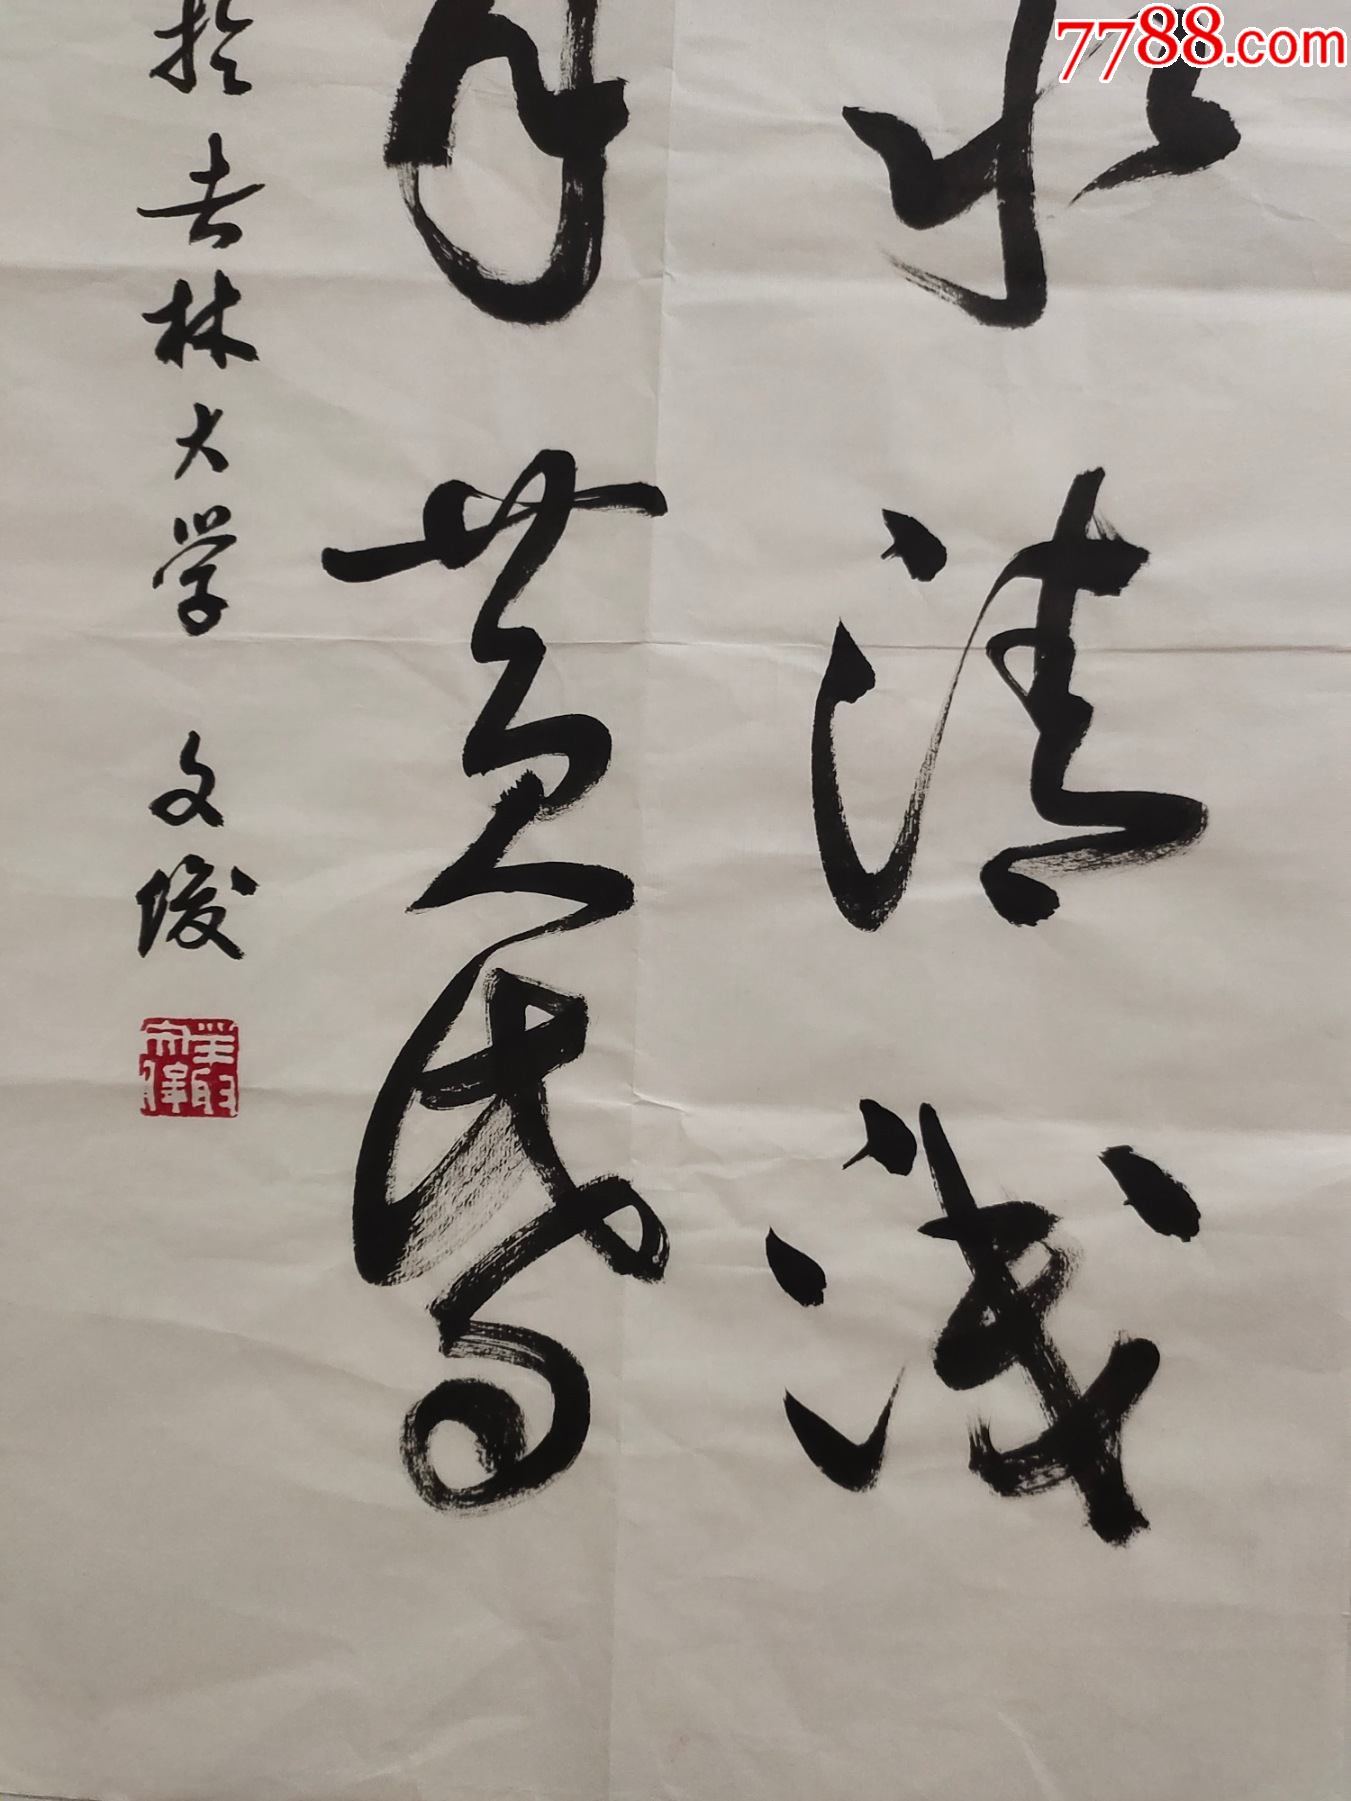 7788.com
水清浅
月黄昏
於吉林大学 文俊